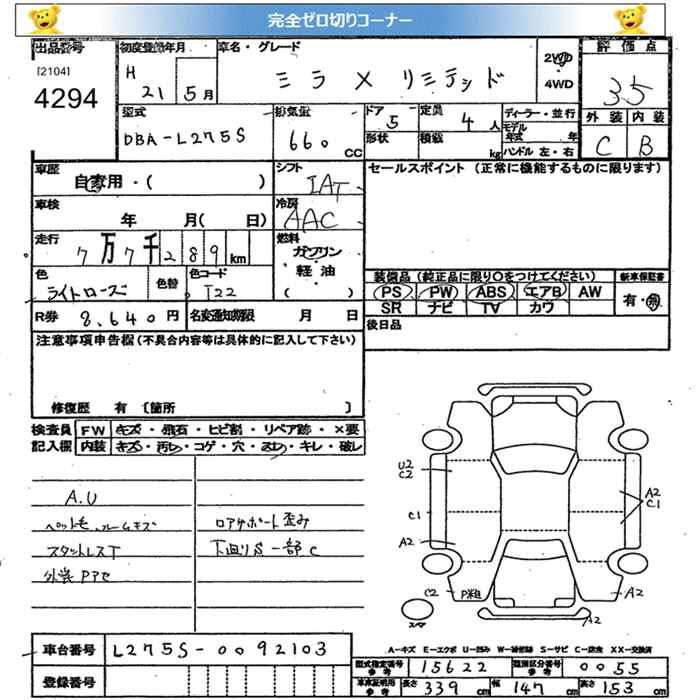 完全ゼロ切りコーナー
出品番号 初度登録年月 車名・グレード 2WD 評価点
[2104] H 21年 5月 ミラ X リミテッド 4WD 3.5
4294
型式 排気量 ドア 5 定員 4人 ディーラー・並行 外装 内装
DBA-L275S 660 CC 形状 積載 kg モデル年式 年 C B
ハンドル 左・右
車歴 シフト セールスポイント (正常に機能するものに限ります)
自家用・( ) IAT
車検 冷房
年 月( 日) AAC
走行 燃料
7万7千289km ガソリン
軽油
色 色替 色コード ( ) 装備品 (純正品に限り○をつけてください) 新車保証書
ライトローズ T22 PS PW ABS エアB AW 有・無
SR ナビ TV カワ
R券 8,640円 名変通知期限 月 日 後日品
注意事項申告欄 (不具合内容等は具体的に記入して下さい)
修復歴 有 〔箇所 〕
検査員 FW キズ・飛石・ヒビ割・リペア跡・×要
記入欄 内装 キズ・汚レ・コゲ・穴・スレ・キレ・破レ
A.U
ペット毛、ルームキズ ロアサポート歪み
スタットレスT 下廻りS 一部C
外装Pアセ
U2
C2
C1
A2
A2
C1
C2 P粗 A2
スマ A2
A-キズ E-エクボ U-凹み W-補修跡 S-サビ C-腐食 XX-交換済
車台番号 L275S-0092103
型式指定番号 参考 15622 類別区分番号 参考 0055
登録番号 車庫証明用 参考 長さ 339 cm 幅 147 cm 高さ 153 cm